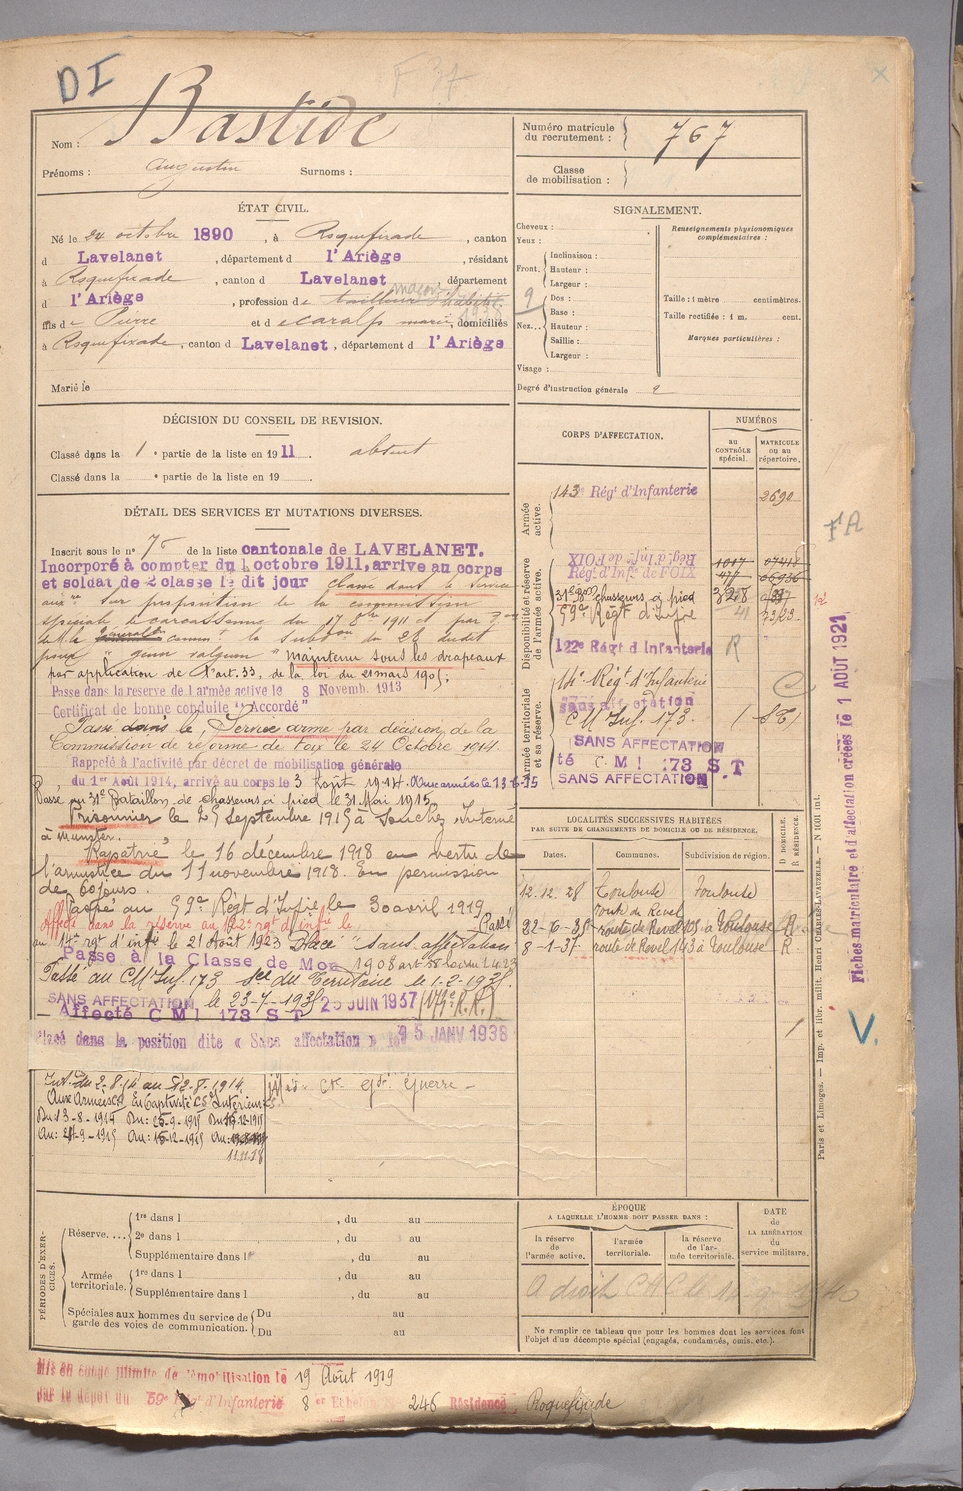 DI
F 37
Nom : Bastide
Prénoms : Augustin Surnoms :
Numéro matricule du recrutement : 767
Classe de mobilisation :
ÉTAT CIVIL.
Né le 24 octobre 1890, à Roquefixade, canton
d Lavelanet, département d l'Ariège, résidant
à Roquefixade, canton d Lavelanet département
d l'Ariège, profession de tailleur d'habits maçon
1938
fils de Pierre et de caralp marie, domiciliés
à Roquefixade, canton d Lavelanet, département d l'Ariège
Marié le
SIGNALEMENT.
Cheveux :
Yeux :
Front. Inclinaison :
Hauteur :
Largeur :
Nez... Dos :
Base :
Hauteur :
Saillie :
Largeur :
Visage :
9
Renseignements physionomiques complémentaires :
Taille : 1 mètre centimètres.
Taille rectifiée : 1 m. cent.
Marques particulières :
Degré d'instruction générale 2
DÉCISION DU CONSEIL DE REVISION.
Classé dans la 1e partie de la liste en 1911. absent
Classé dans la e partie de la liste en 19 .
DÉTAIL DES SERVICES ET MUTATIONS DIVERSES.
Inscrit sous le n° 76 de la liste cantonale de LAVELANET.
Incorporé à compter du 1 octobre 1911, arrive au corps
et soldat de 2 classe le dit jour classé dans le service
auxre sur proposition de la commission
spéciale de carcassonne du 17 8bre 1911 et par
du 28 dudit
pour "genu valgum" maintenu sous les drapeaux
par application de l'art. 33, de la loi du 21 mars 1905;
Passe dans la reserve de l'armée active le 8 Novemb. 1913
Certificat de bonne conduite "Accordé"
Passé dans le Service armé par décision de la
Commission de réforme de Foix le 24 Octobre 1914.
Rappelé à l'activité par décret de mobilisation générale
du 1er Août 1914, arrivé au corps le 3 Août 1914. Aux armées le 13-6-15
Passé au 31e Bataillon de chasseurs à pied le 31 Mai 1915.
Prisonnier le 25 Septembre 1915 à Souchez Interné
à Munster.
Rapatrié le 16 décembre 1918 en vertu de
l'armistice du 11 novembre 1918. En permission
de 60 jours.
Passé au 59e Régt d'Infie, le 30 avril 1919,
Affecté dans la réserve au 122e régt d'infie le
Passé
au 14e rgt d'infie le 21 Août 1923 Placé "sans affectation"
Passé à la Classe de Mob 1908 art 58 loi du 1.4.23
Passé au CM Inf. 173 Sce du Territoire le 1-2-1935.
SANS AFFECTATION le 23-7-1935
Affecté C M I 173 S T 25 JUIN 1937
Placé dans la position dite « Sans affectation » le 15 JANV 1938
Int. du 2-8-14 au 12-8-1914
Aux Armées En Captivité Intérieur
Du 13-8-1915 Du: 25-9-1915 Du 16-12-1918
Au: 24-9-1915 Au: 15-12-1918 Au:
11.11.18
CORPS D'AFFECTATION.
NUMÉROS
au CONTRÔLE spécial.
MATRICULE ou au répertoire.
Armée active.
143e Régt d'Infanterie 2690
Disponibilité et réserve de l'armée active.
Régt d'Infie de FOIX 1017
Régt d'Infie de FOIX 477 06936
31e Bon chasseurs à pied 328
59e Régt d'Infie 41
122e Régt d'Infanterie R
Armée territoriale et sa réserve.
14e Régt d'Infanterie
sans affectation
CM Inf. 173.
SANS AFFECTATION
té C M I 173 S.T
SANS AFFECTATION
LOCALITÉS SUCCESSIVES HABITÉES
PAR SUITE DE CHANGEMENTS DE DOMICILE OU DE RÉSIDENCE.
Dates. Communes. Subdivision de région. D DOMICILE. R RÉSIDENCE.
12.12.28 Toulouse Toulouse
22-10-35 route de Revel 105 à Toulouse R
8-1-37 route de Revel 143 à Toulouse R
Fiches matriculaire et d'affectation créées le 1 AOUT 1921
FA
V.
Paris et Limoges. — Imp. et libr. milit. Henri CHARLES-LAVAUZELLE. — N 1031 int.
PÉRIODES D'EXERCICES.
Réserve.... 1re dans l , du au
2e dans l , du au
Supplémentaire dans l , du au
Armée territoriale. 1re dans l , du au
Supplémentaire dans l , du au
Spéciales aux hommes du service de garde des voies de communication. Du au
Du au
ÉPOQUE
A LAQUELLE L'HOMME DOIT PASSER DANS :
la réserve de l'armée active.
l'armée territoriale.
la réserve de l'armée territoriale.
DATE de LA LIBÉRATION du service militaire.
A droit CAC le
Ne remplir ce tableau que pour les hommes dont les services font l'objet d'un décompte spécial (engagés, condamnés, omis, etc.).
Mis en congé illimité de démobilisation le 19 Août 1919
par le dépôt du 59e Régt d'Infanterie 8 er Echelon N° 246 Résidence Roquefixade